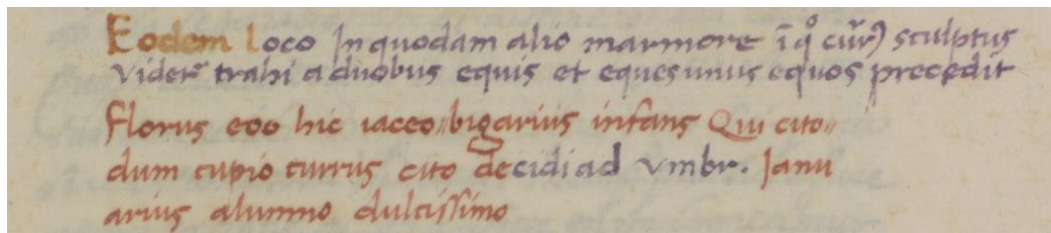 Eodem loco In quodam alio marmore ī qͦ cur͛ sculptus
Videt͛ trahi a duobus equis et eques unus equos precedit
Florus eoo hic iaceo // bigarius infans Qui cito //
dum cupio currus cito decidi ad Vmbr. Ianu
arius alumno dulcissimo